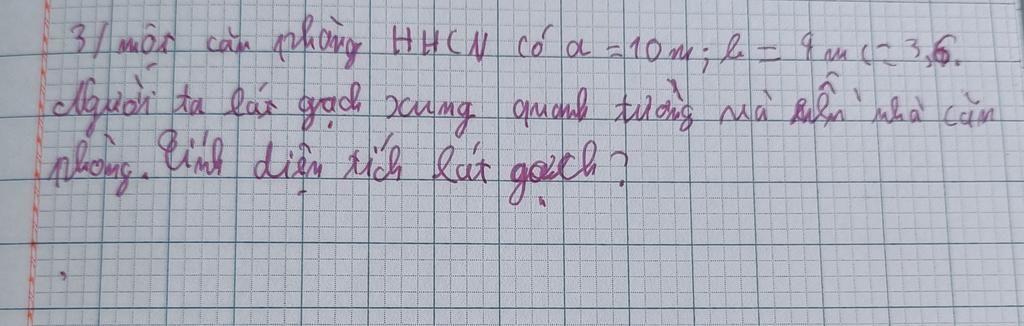 3/ một căn phòng HHCN có a = 10 m; b = 9 m c = 3,6.
Người ta lát gạch xung quanh tường và nền nhà căn
phòng. Tính diện tích lát gạch?